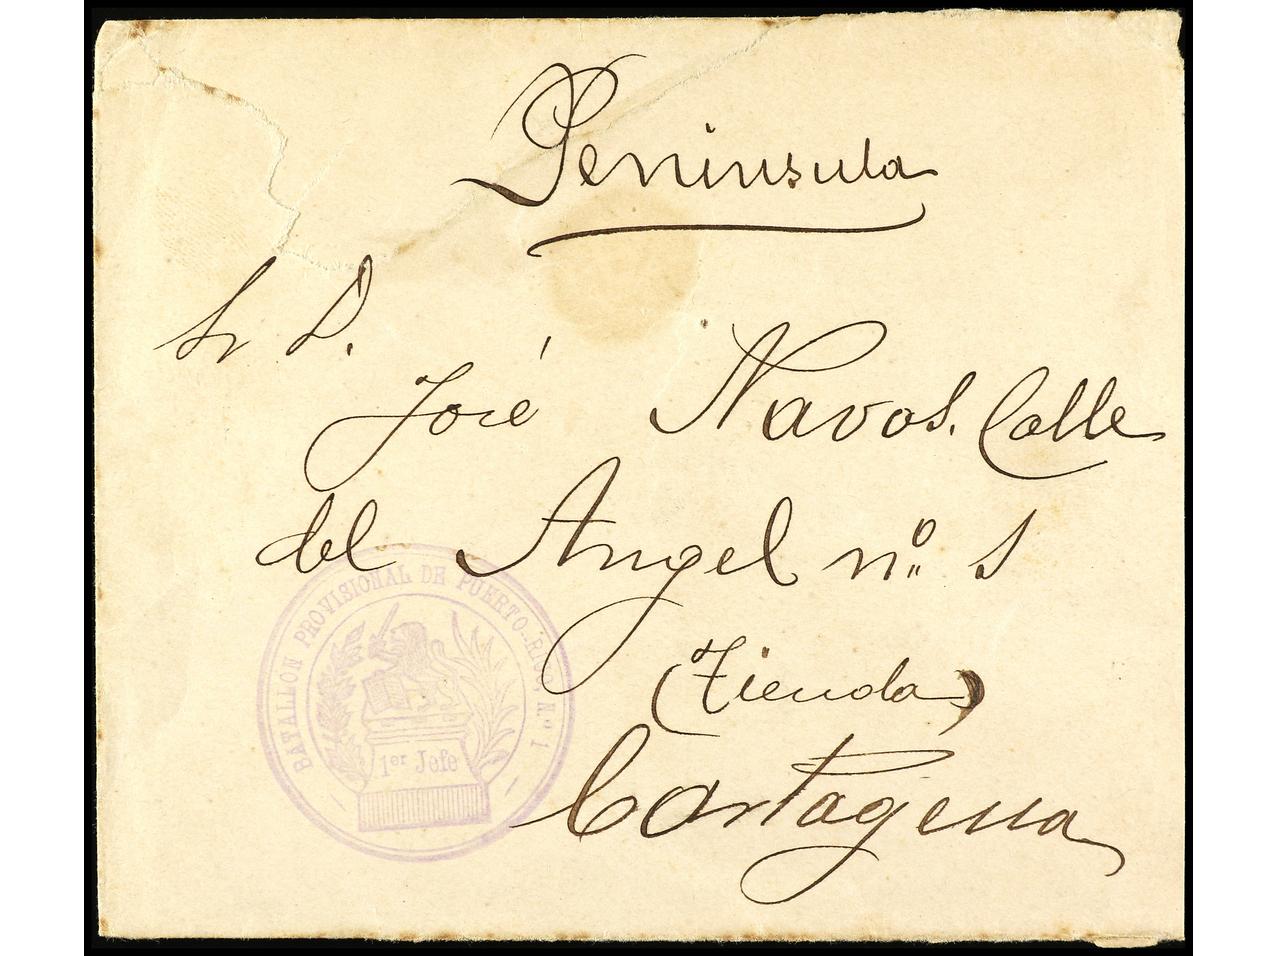 Península
Sr D.
José Navos. Calle
del Angel nº. 1
(Tienda)
Cartagena
BATALLÓN PROVISIONAL DE PUERTO-RICO, Nº 1
1er Jefe